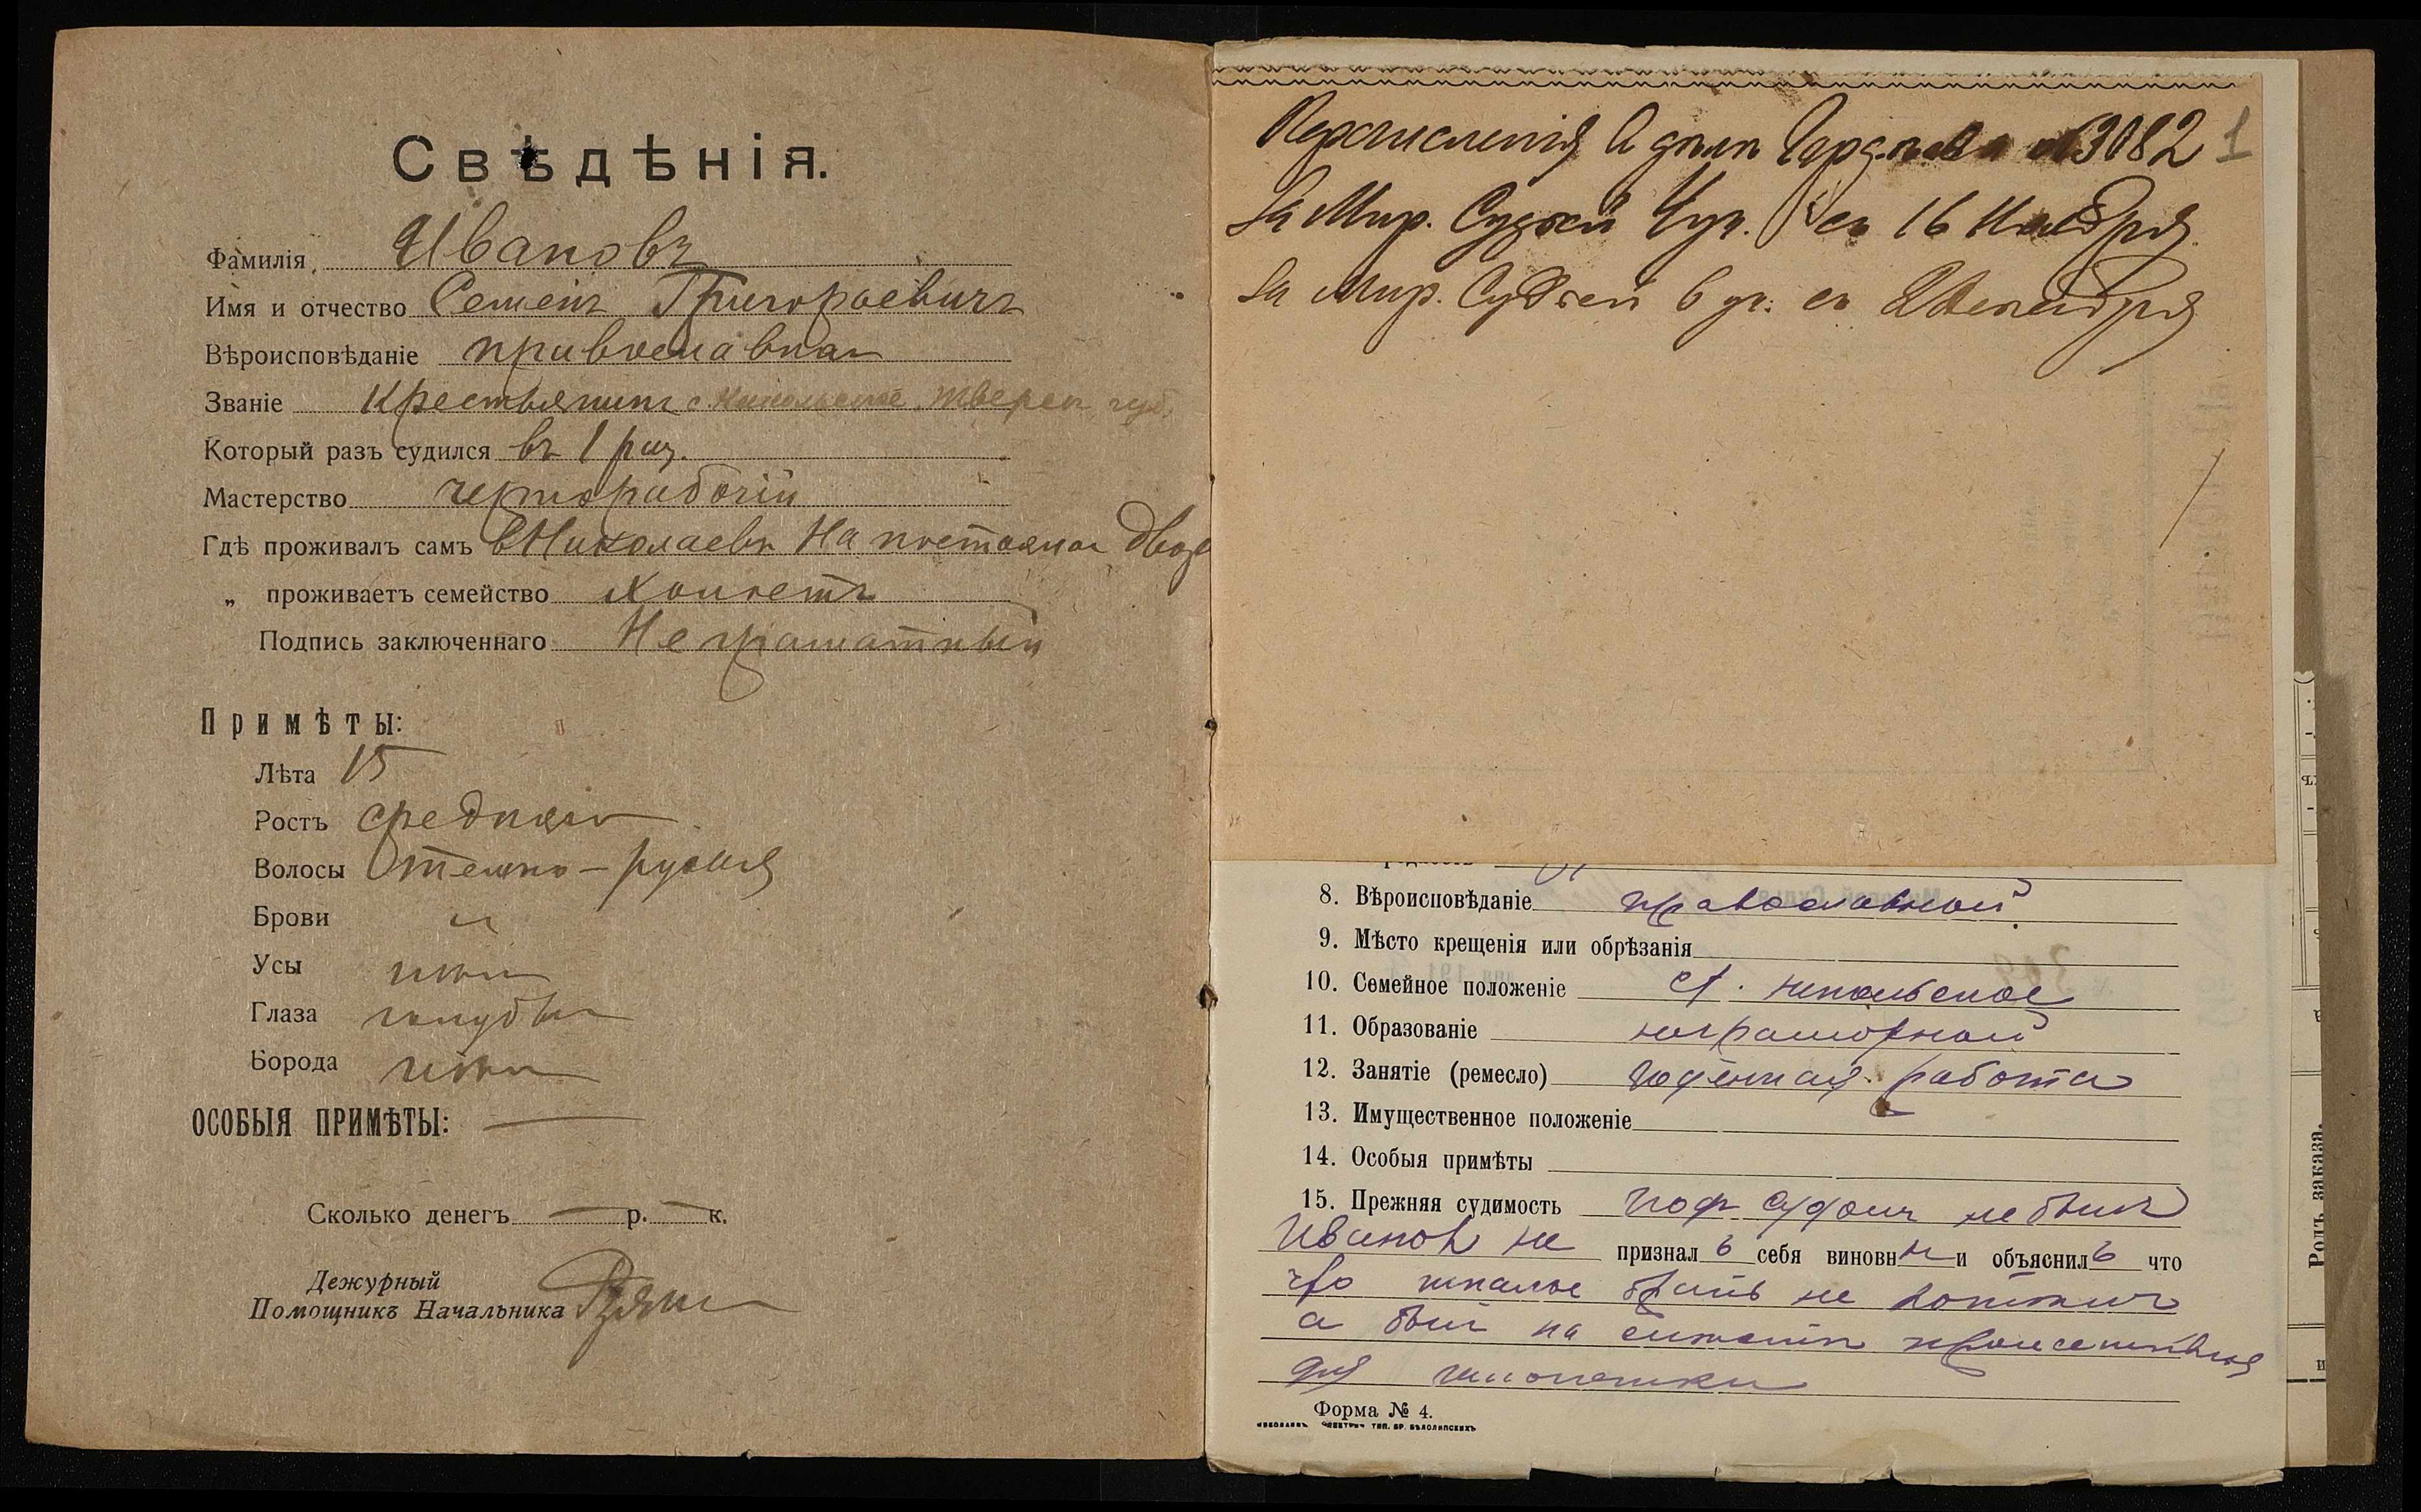 Свѣдѣнія.
Фамилія Ивановъ
Имя и отчество Семенъ Григорьевичъ
Вѣроисповѣданіе православнаго
Званіе Крестьянинъ с Никольское Тверск губ.
Который разъ судился въ 1 раз.
Мастерство чернорабочій
Гдѣ проживалъ самъ в Николаевѣ На постоялом дворе
„ проживаетъ семейство
Подпись заключеннаго Неграматный
Примѣты:
Лѣта 15
Ростъ средняго
Волосы темно-русыя
Брови
Усы нѣтъ
Глаза голубые
Борода нѣтъ
ОСОБЫЯ ПРИМѢТЫ: —
Сколько денегъ — р. — к.
Дежурный
Помощникъ Начальника
Перечисленія № 3082 1
За Мир. Судьей уч. съ 16 Ноября
За Мир. Судьей 6 уч. съ 2 Декабря
8. Вѣроисповѣданіе православной
9. Мѣсто крещенія или обрѣзанія
10. Семейное положеніе с. никольское
11. Образованіе неграмотной
12. Занятіе (ремесло) поденная работа
13. Имущественное положеніе
14. Особыя примѣты
15. Прежняя судимость под судом не был
Иванов не признал ъ себя виновн и объяснил ъ что
что брать не
а был на происшествия
для
Форма № 4.